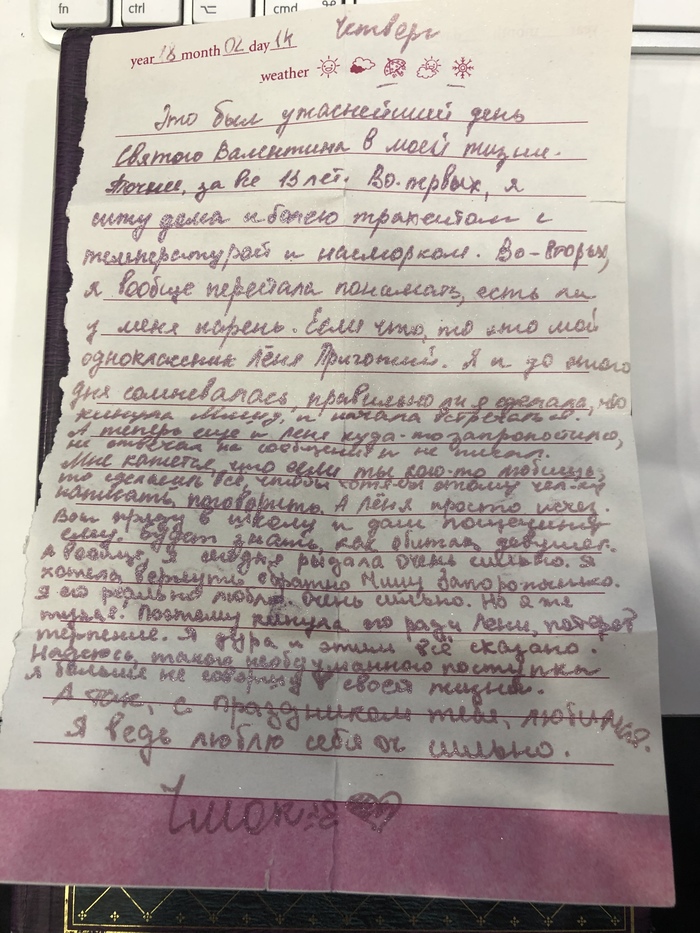 fn ctrl cmd
Четверг
year 18 month 02 day 14
weather
Это был ужаснейший день
Святого Валентина в моей жизни.
Точнее, за все 13 лет. Во-первых, я
сижу дома и болею трахеитом с
температурой и насморком. Во-вторых,
я вообще перестала понимать, есть ли
у меня парень. Если что, то это мой
одноклассник Лёня Пригожий. Я и до этого
дня сомневалась, правильно ли я сделала, что
кинула Мишу, и начала встречаться.
А теперь еще и Лёня куда-то запропостился,
не отвечал на сообщения и не писал.
Мне кажется, что если ты кого-то любишь,
то сделаешь всё, чтобы хотя бы этому чел-ку
написать, поговорить. А Лёня просто исчез.
Вот приду в школу и дам пощечину
ему. Будет знать, как обижать девушек.
А вообще, я сегодня рыдала очень сильно. Я
хотела вернуть обратно Мишу Запорожченко.
Я его реально люблю очень сильно. Но я же
тупая. Поэтому кинула его ради Лёни, потеряв
терпение. Я дура и этим всё сказано.
Надеюсь, такого необдуманного поступка
я больше не совершу в своей жизни.
А так, с праздником тебя, любимая.
Я ведь люблю себя оч сильно.
Чмоки